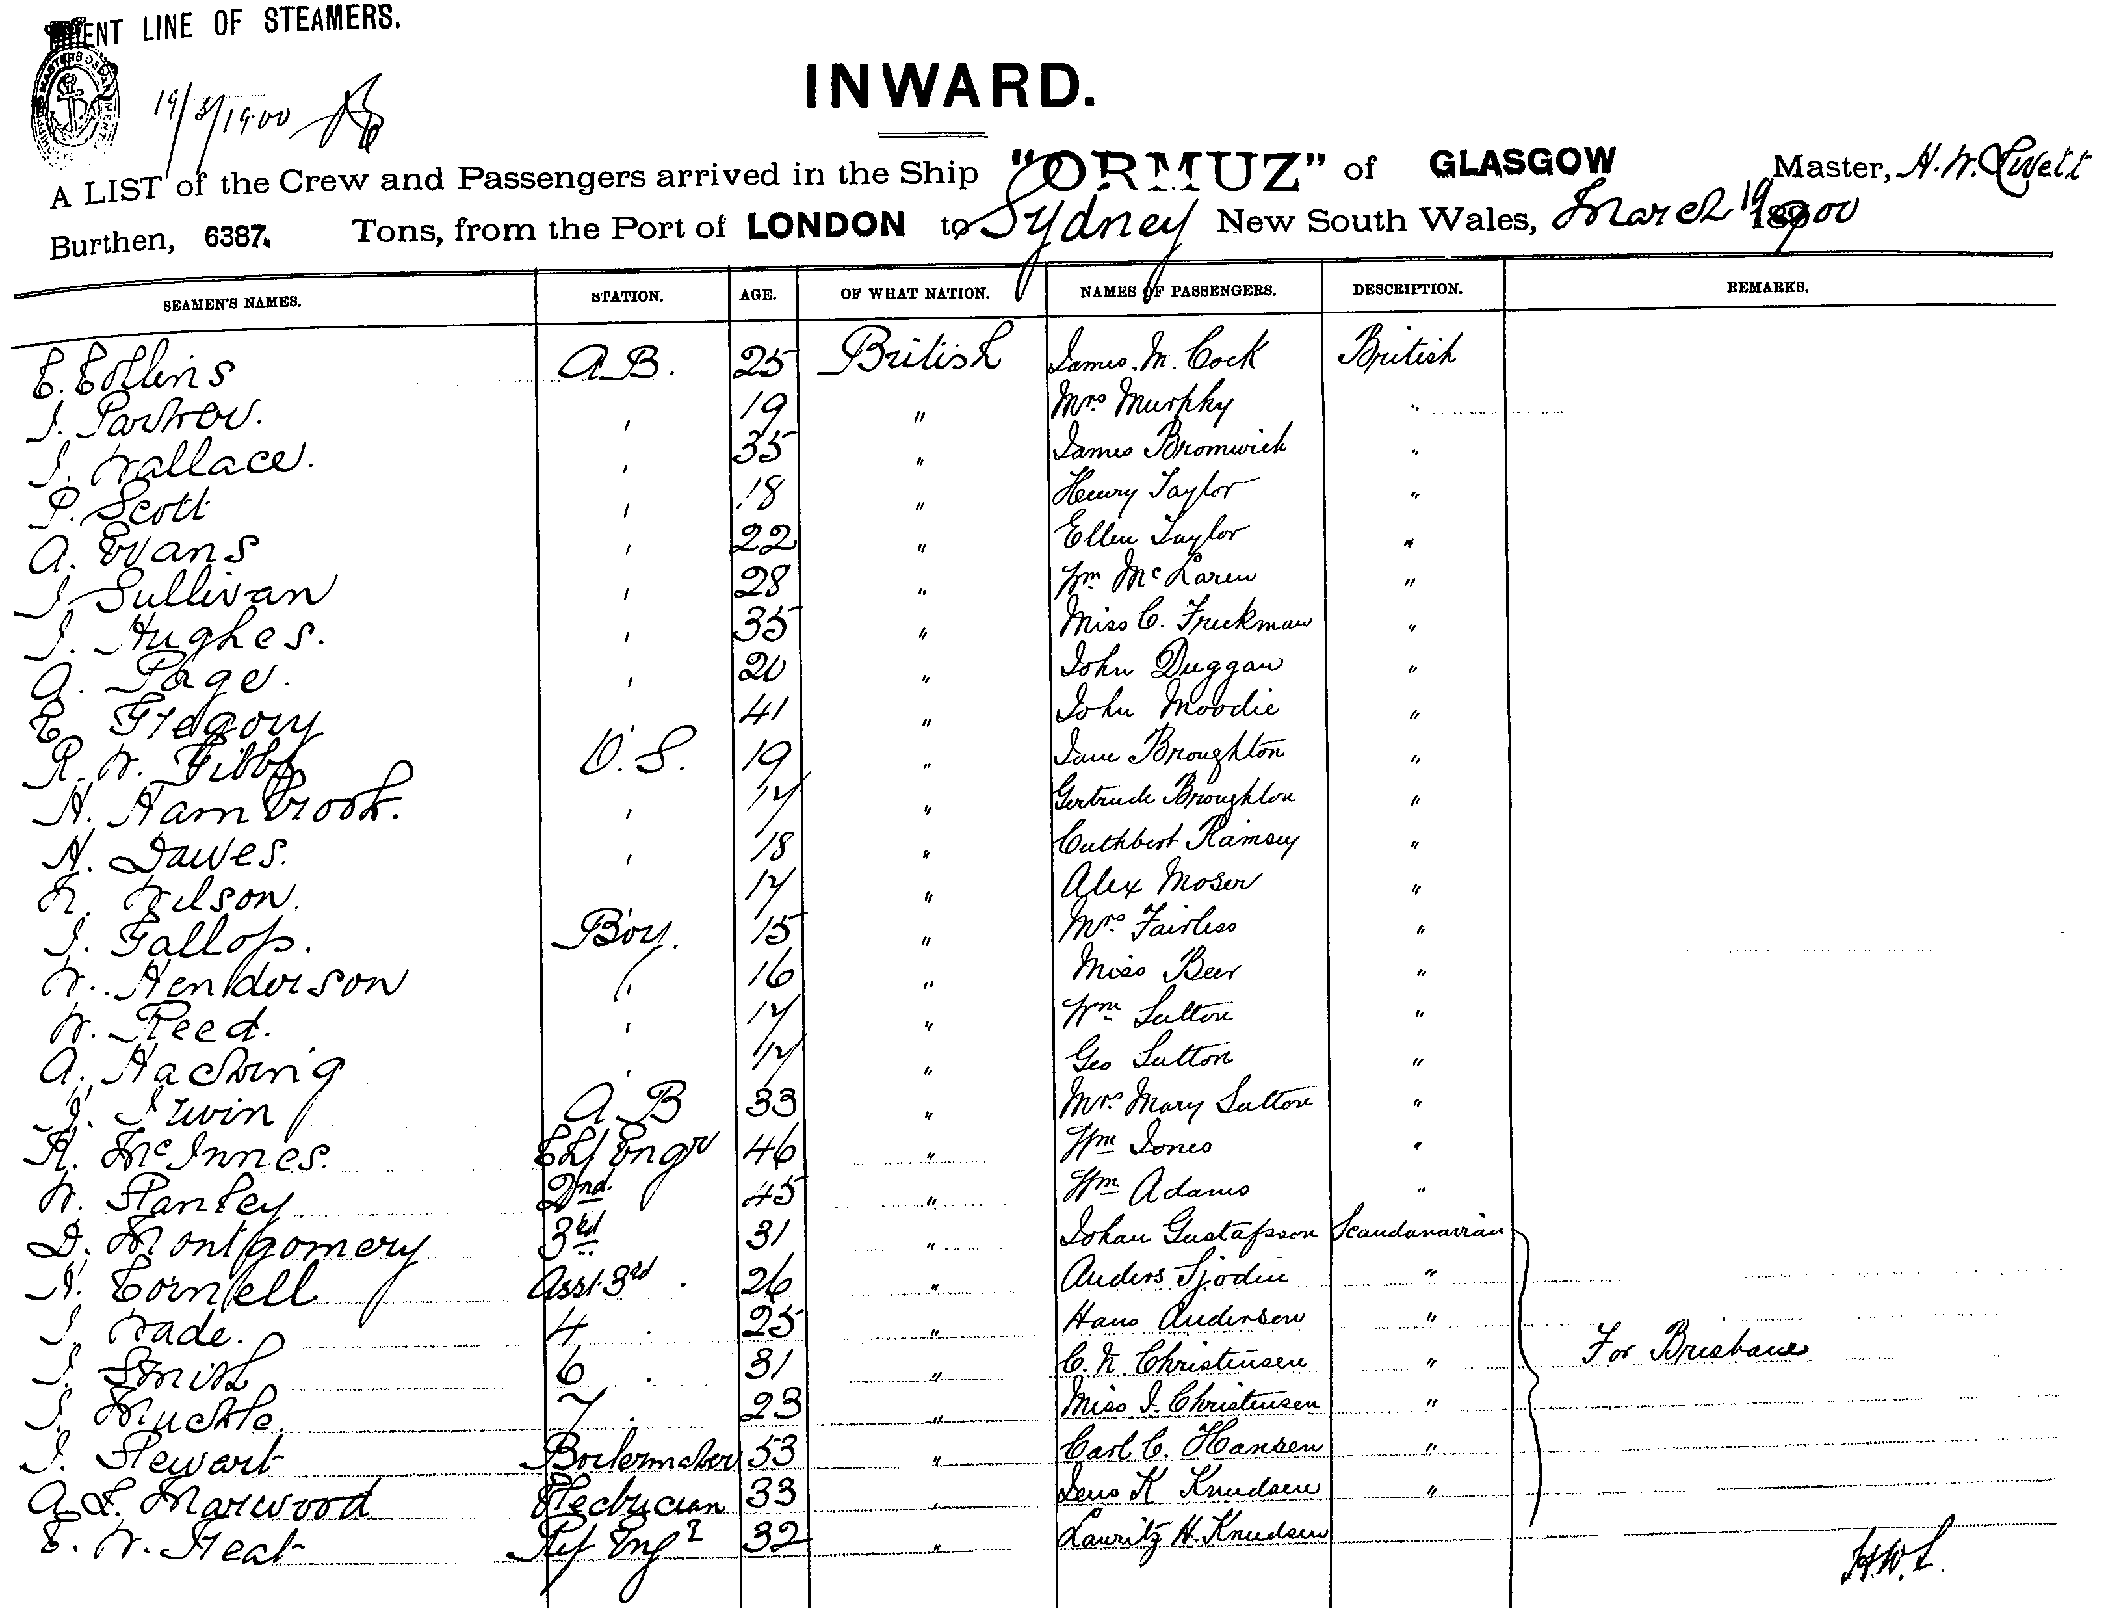 ORIENT LINE OF STEAMERS.
19/3/1900
INWARD.
A LIST of the Crew and Passengers arrived in the Ship "ORMUZ" of GLASGOW Master,
Burthen, 6387. Tons, from the Port of LONDON to Sydney New South Wales, March 19 1900
SEAMEN'S NAMES. STATION. AGE. OF WHAT NATION. NAMES OF PASSENGERS. DESCRIPTION. REMARKS.
E. Collins A.B. 25 British James M. Cock British
J. 19 " Mrs Murphy "
J. Wallace. 35 " James Bromwich "
P. Scott 18 " Henry Taylor "
A. Evans 22 " Ellen Taylor "
J. Sullivan 28 " Wm McLaren "
J. Hughes. 35 " Miss C. "
A. Page. 20 " John Duggan "
E. Gregory 41 " John Moodie "
R. W. Gibbs O.S. 19 " Jane Broughton "
H. Hambrook. 17 " Gertrude Broughton "
H. Dawes. 18 " Cuthbert Ramsey "
Wilson. 17 " Alex Moser "
J. Gallop. Boy. 15 " Mrs Fairless "
W. Henderson 16 " Miss Beer "
W. Reed. 17 " Wm Sutton "
A. 17 " Geo Sutton "
J. Irwin A.B 33 " Mrs Mary Sutton "
McInnes. Chf Engr 46 " Wm Jones "
W. Stanley 2nd 45 " Wm Adams "
D. Montgomery 3rd 31 " Johan Gustafsson Scandanavian
Cornell Asst 3rd 26 " Anders Sjodin "
J. Wade. 4 25 " Hans Andersen "
J. Smith 6 31 " C. N. Christensen " For Brisbane
J. Muckle 7 23 " Miss J. Christensen "
J. Stewart Boilermaker 53 " Carl C. Hansen "
A. Marwood Electrician 33 " Jens K Knudsen "
E. W. Ref Engr 32 " Lauritz H. Knudsen
H.W.L.